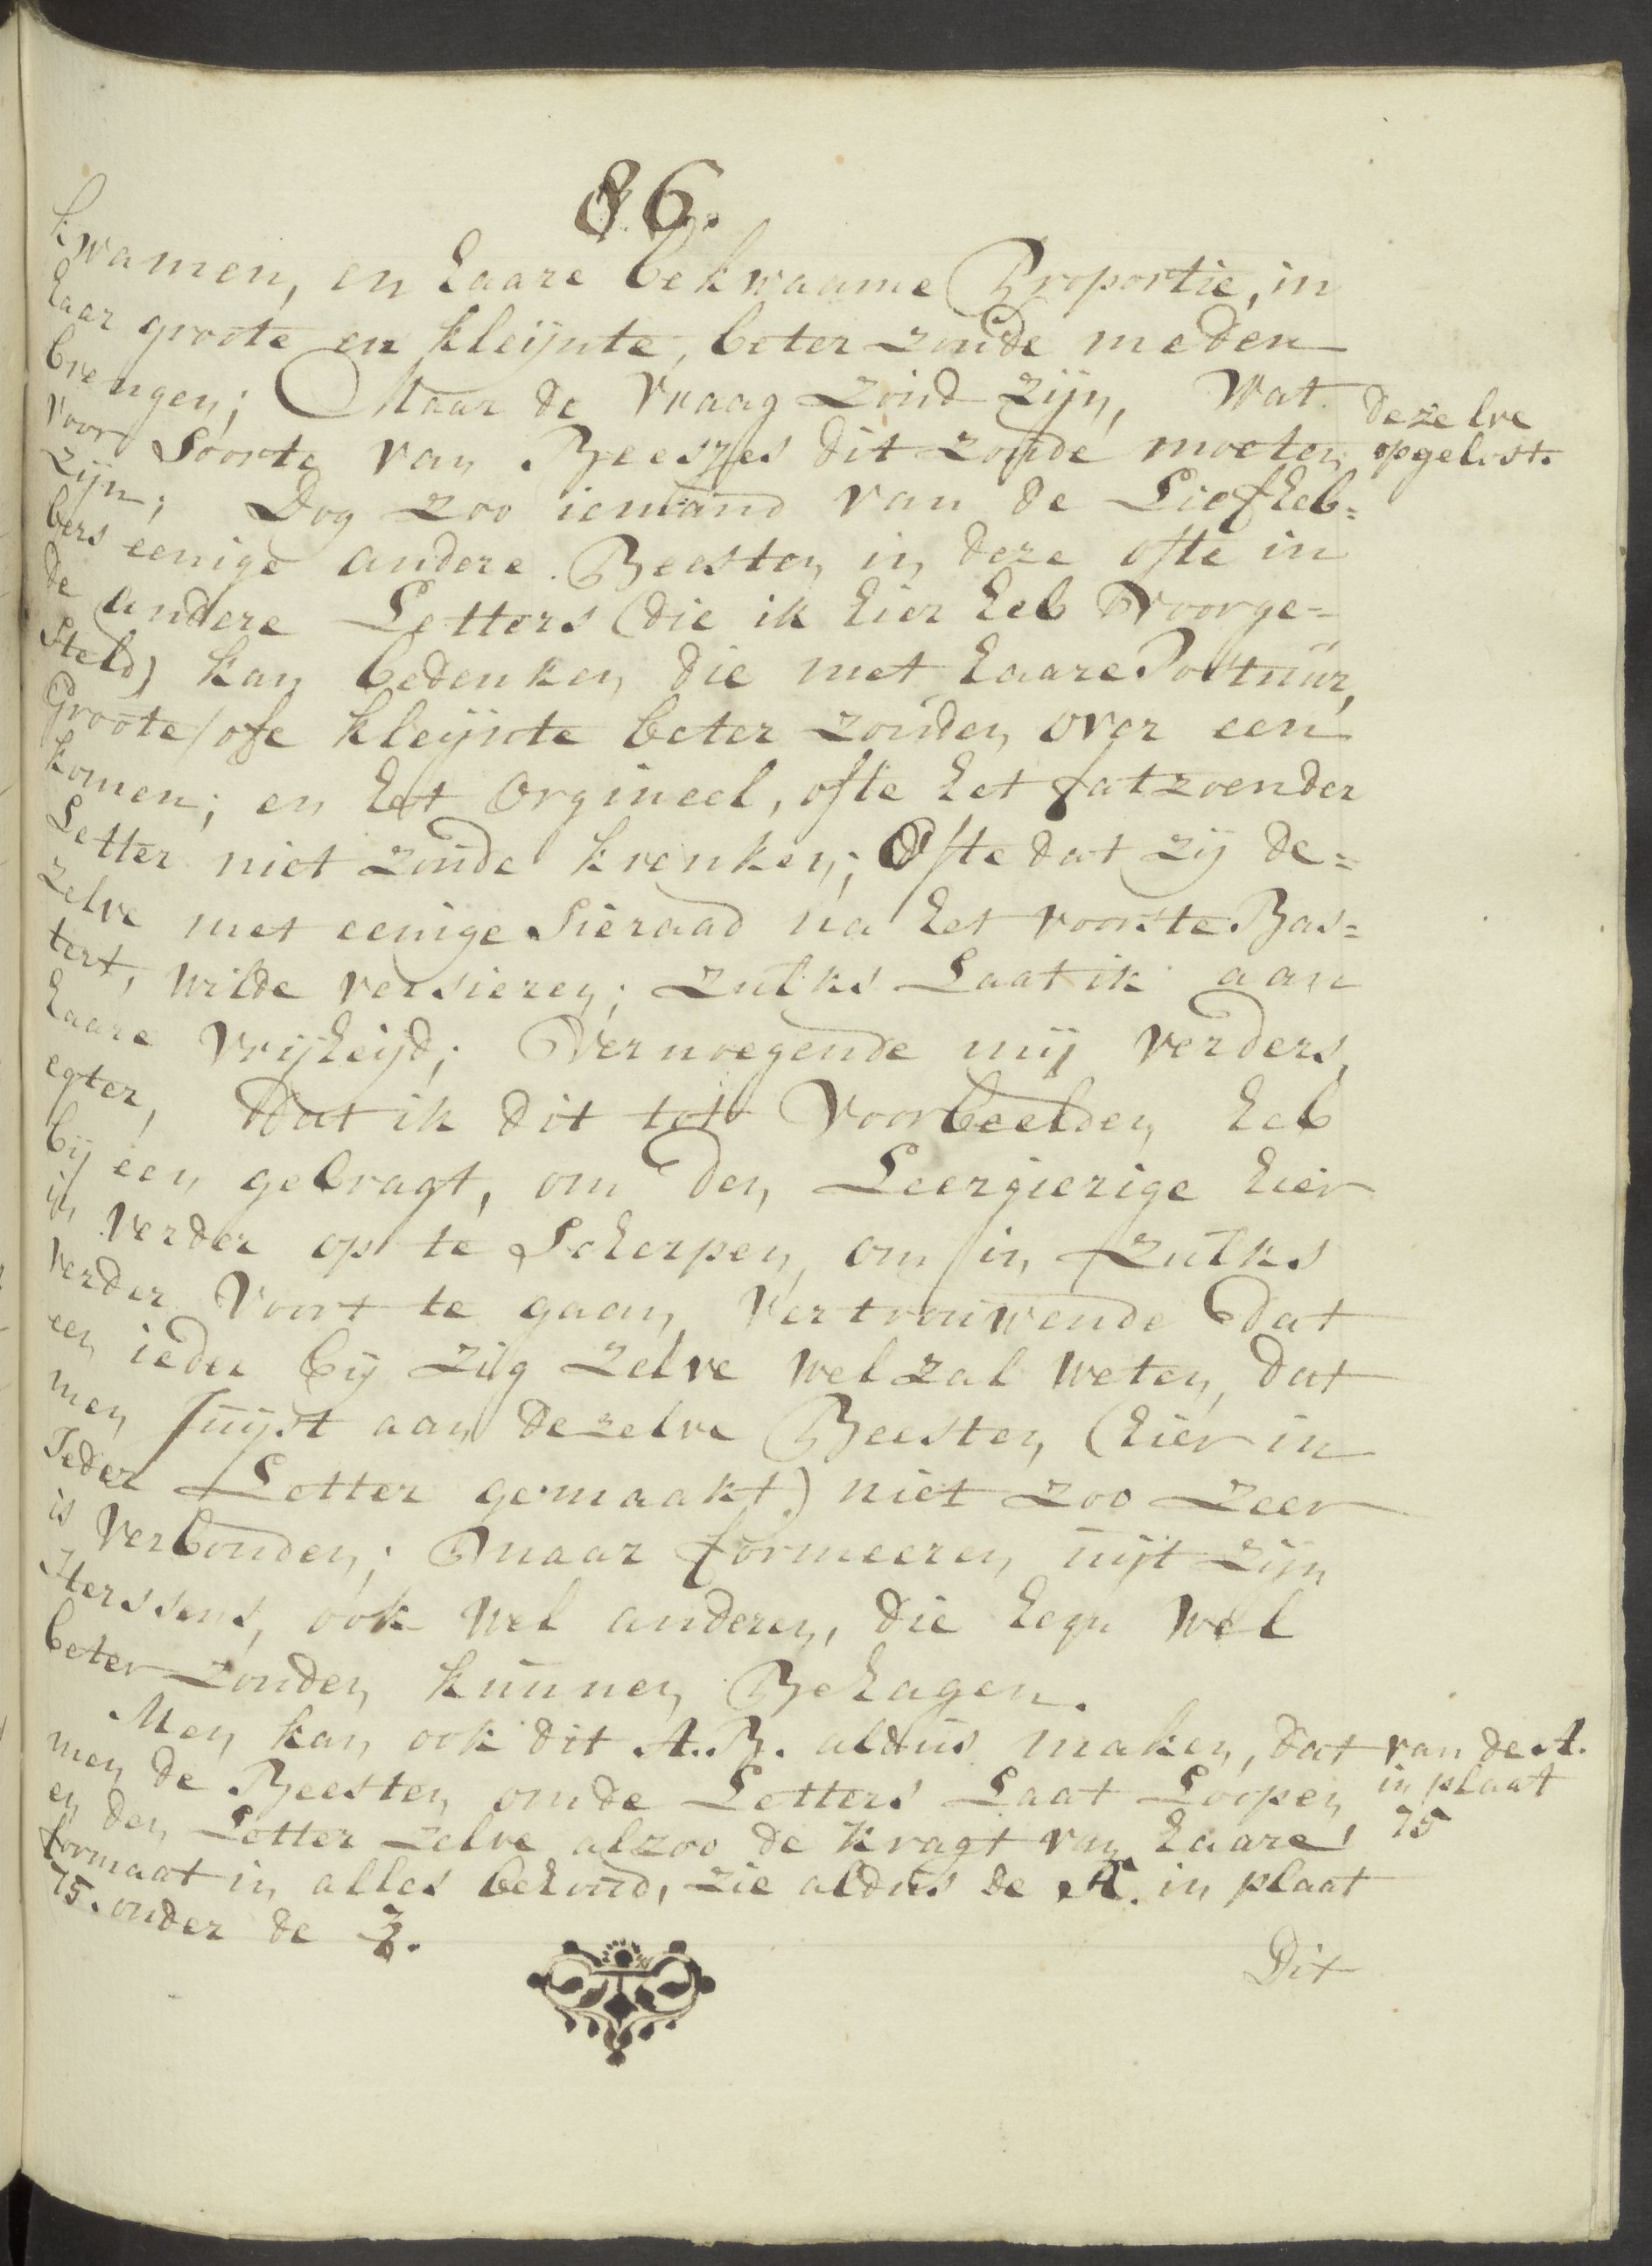 86.
kwamen, en haare bekwaame Proportie, in
haar groote en kleijnte, beter zoude meden
brengen; Maar de vraag zoud zijn, Wat
voor Soorte van Beesjes dit zoude moeten
zijn; Dog zoo iemand van de Liefheb=
bers eenige andere Beesten in deze ofte in
de andere Letters (die ik hier heb voorge=
steld) kan bedenken die met haare Postuur,
Groote/ofe kleijnte beter zouden over een
komen; en het Orgineel, ofte het fatzoender
Letter niet zoude krenken; Ofte dat zij de=
zelve met eenige Sieraad na het voorste Bas=
tert, wilde versieren; zulks Laat ik aan
haare vrijheijd; Vernoegende mij verders,
egter, Dat ik dit tot Voorbeelden heb
bij een gebragt, om den Leergierige hier
in verder op te Scherpen, om in zulks
verder Voort te gaan, Vertrouwende dat
een ieder bij zig zelve wel zal weten, dat
men Juijst aan dezelve Beesten (hier in
Ieder Letter gemaakt) niet zoo zeer
is Verbonden; maar formeeren uijt zijn
Herssens, ook wel anderen, die hem wel
beter zouden kunnen Behagen.
Men kan ook dit A.B. aldus maken, dat
men de Beesten om de Letters Laat Loopen
en den Letter zelve alzoo de kragt van haare
formaat in alles behoud, zie aldus de A. in plaat
75. onder de 3.
dezelve
opgelost.
van de A.
in plaat
75
Dit